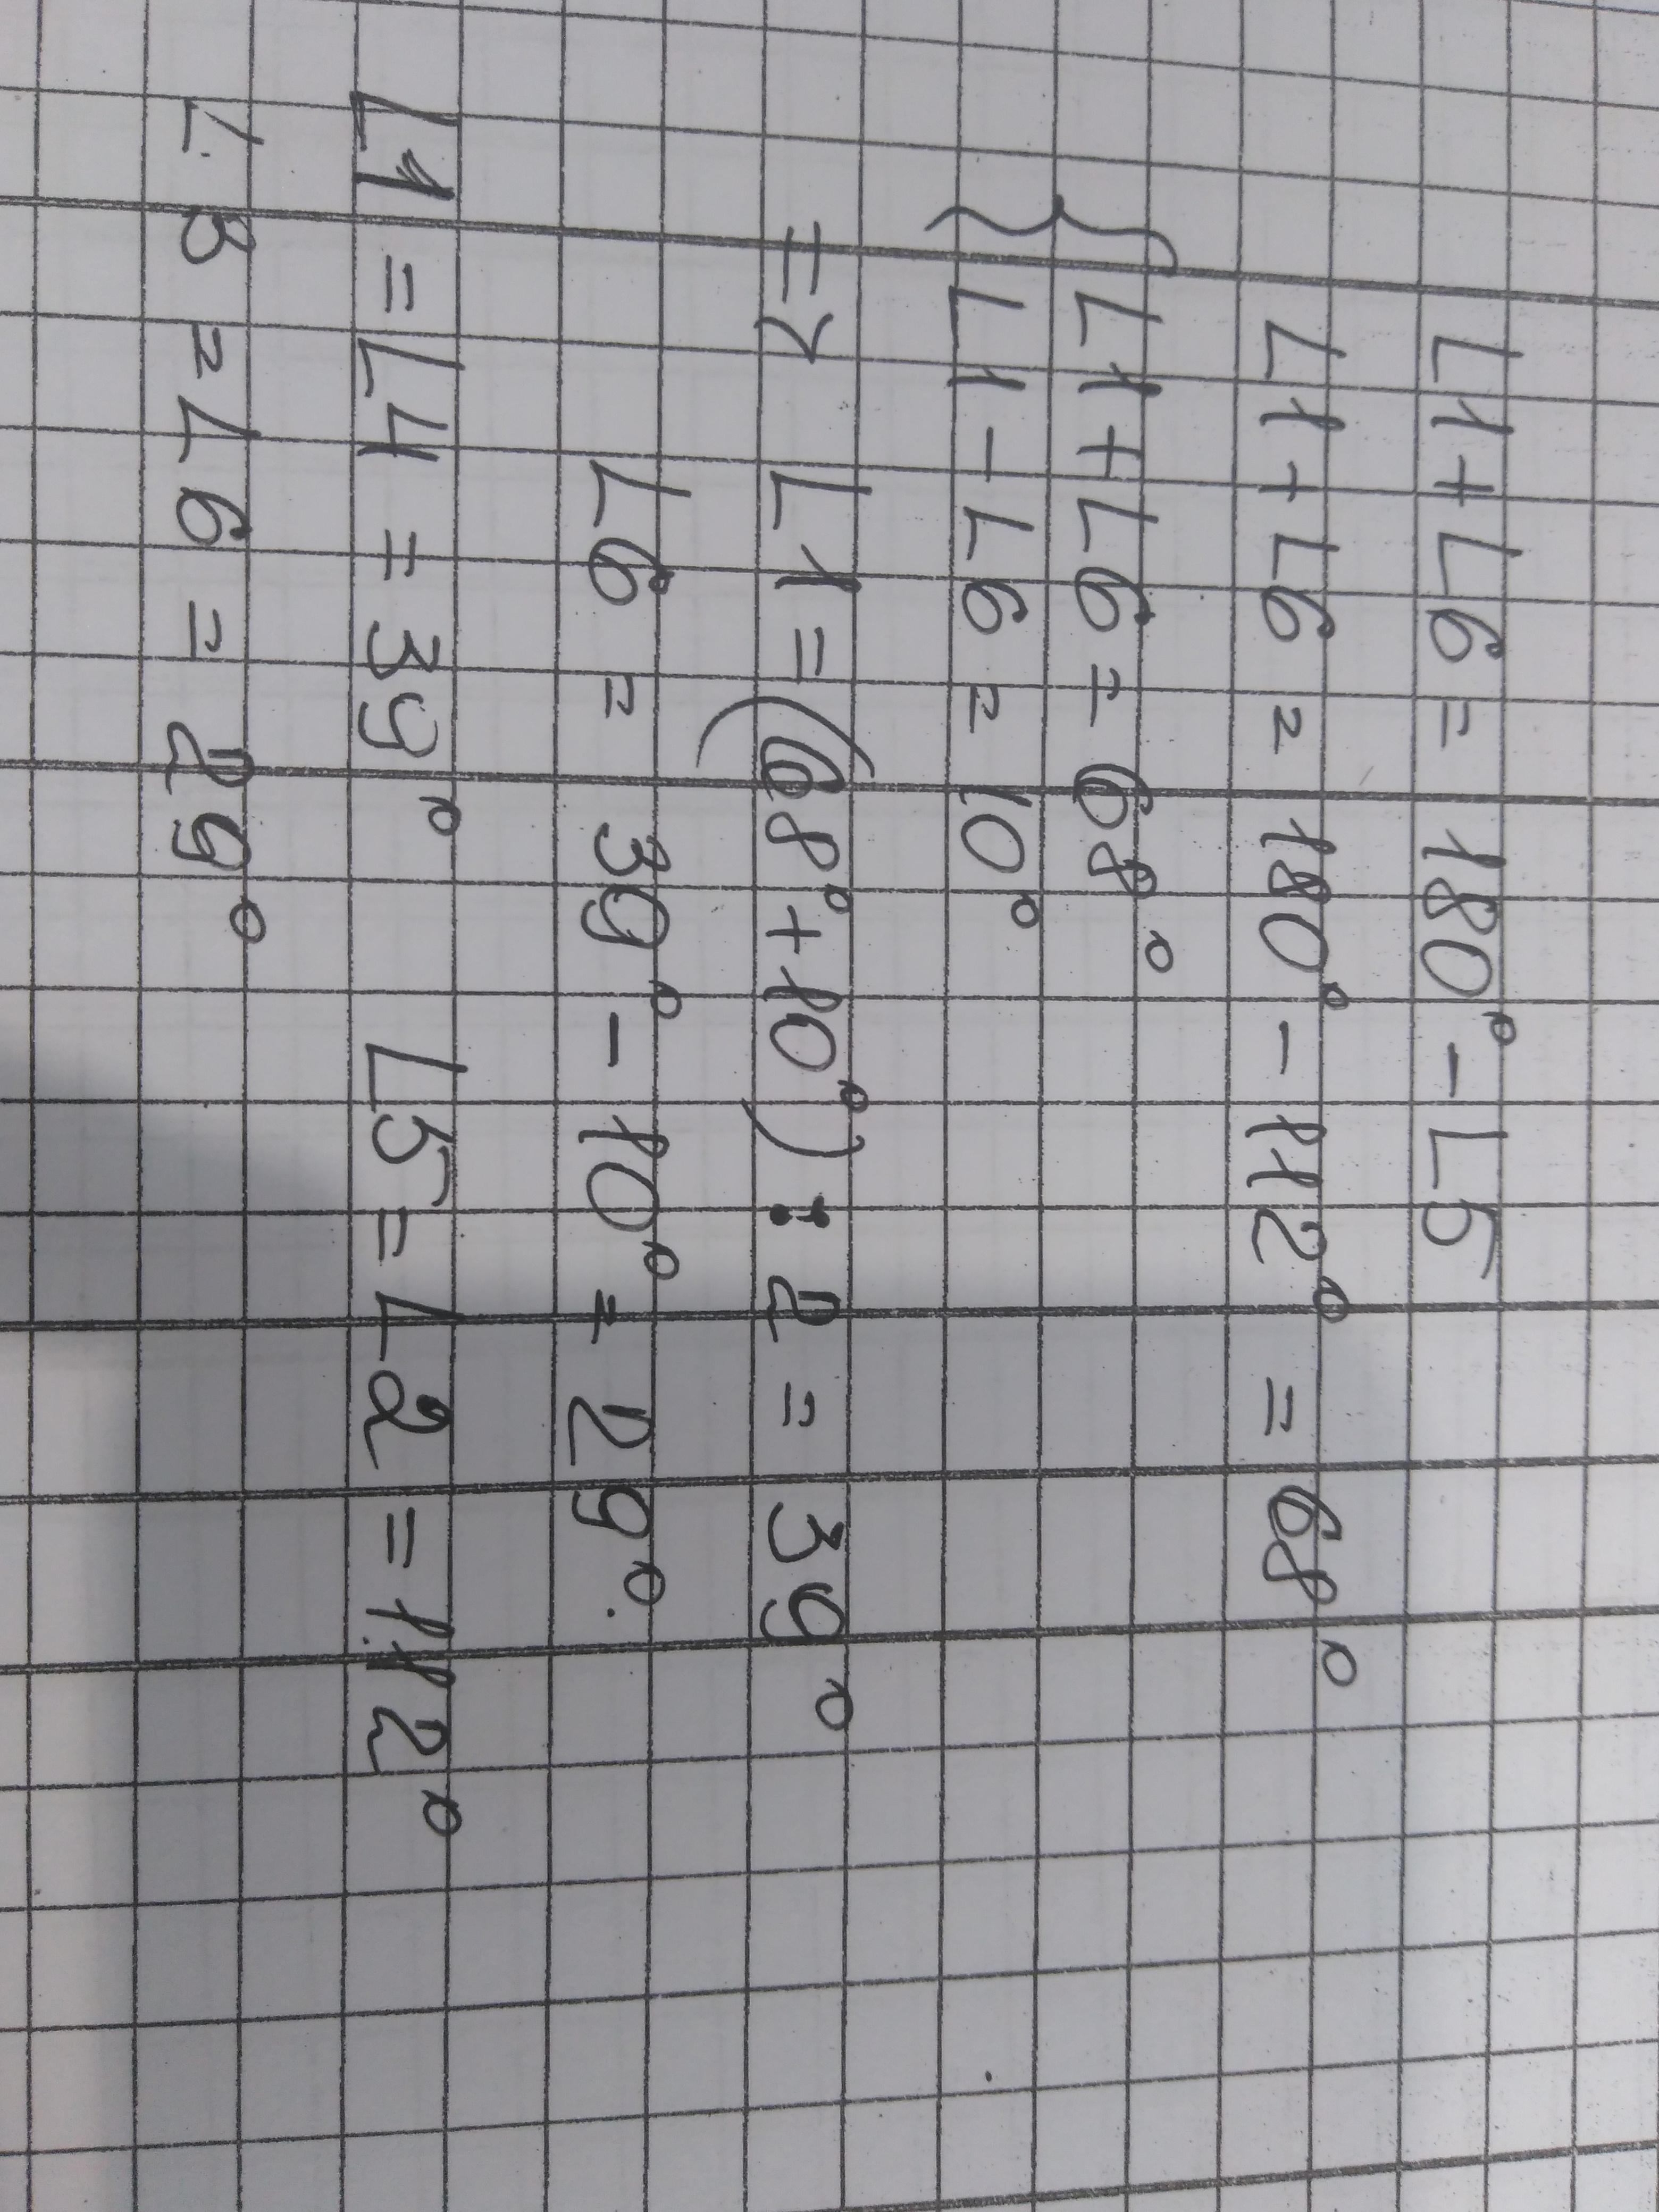 ∠1+∠6 = 180° - ∠5
∠1+∠6 = 180° - 112° = 68°
{ ∠1+∠6 = 68°
∠1-∠6 = 10°
=> ∠1 = (68°+10°) : 2 = 39°
∠6 = 39° - 10° = 29°.
∠1 = ∠4 = 39° ∠5 = ∠2 = 112°
∠3 = ∠6 = 29°